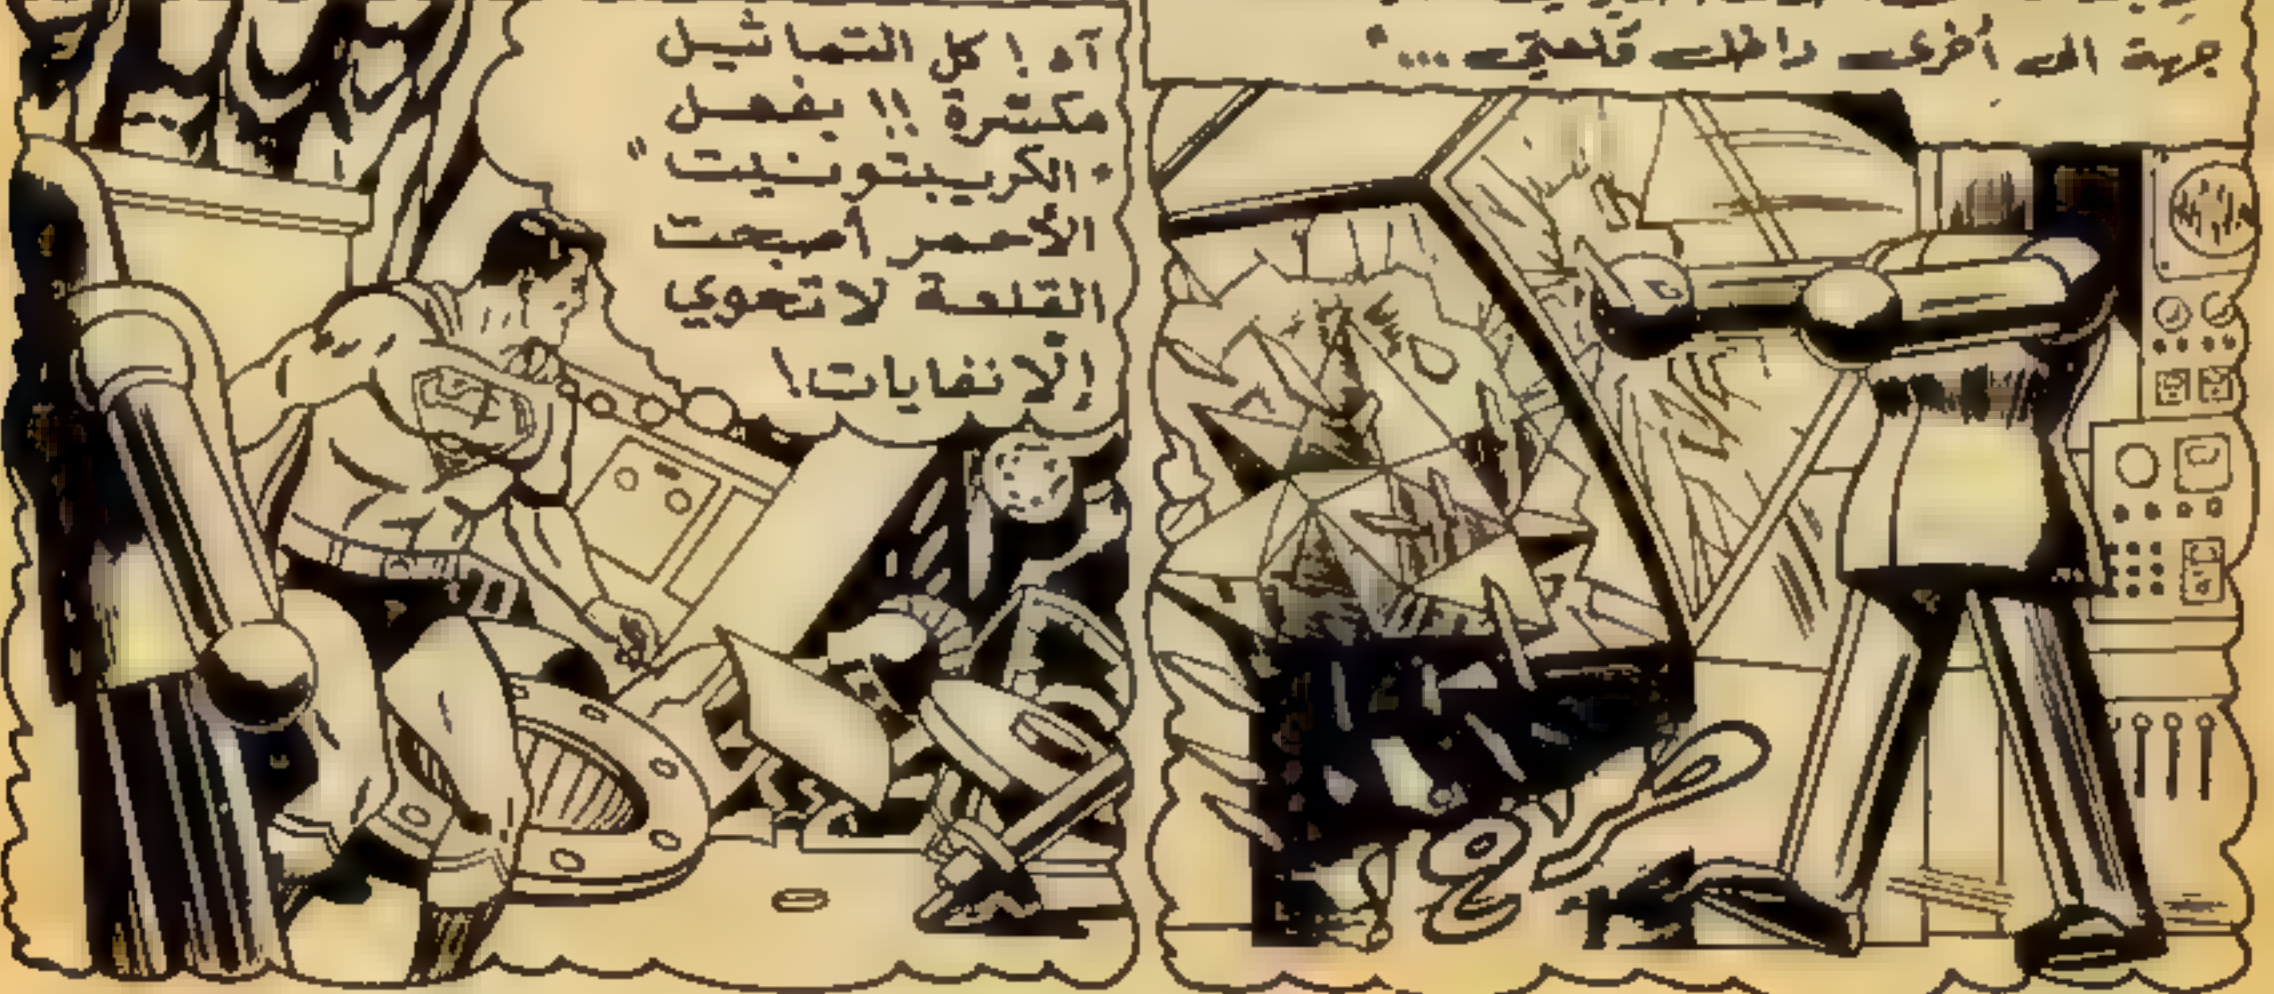 جهة الى أخرى داخل قلعتي ..."
آه ! كل التماثيل
مكسّرة !! بفعل
"الكريبتونيت"
الأحمر أصبحت
القلعة لا تحوي
إلّا نفايات!